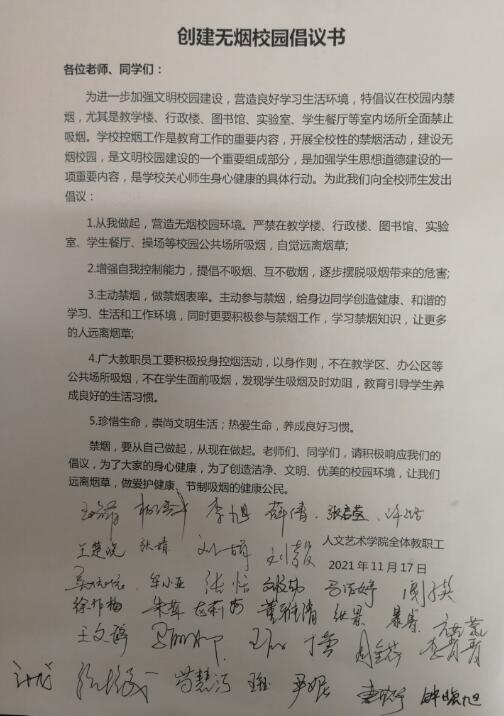 创建无烟校园倡议书
各位老师、同学们：
为进一步加强文明校园建设，营造良好学习生活环境，特倡议在校园内禁
烟，尤其是教学楼、行政楼、图书馆、实验室、学生餐厅等室内场所全面禁止
吸烟。学校控烟工作是教育工作的重要内容，开展全校性的禁烟活动，建设无
烟校园，是文明校园建设的一个重要组成部分，是加强学生思想道德建设的一
项重要内容，是学校关心师生身心健康的具体行动。为此我们向全校师生发出
倡议：
1.从我做起，营造无烟校园环境。严禁在教学楼、行政楼、图书馆、实验
室、学生餐厅、操场等校园公共场所吸烟，自觉远离烟草；
2.增强自我控制能力，提倡不吸烟、互不敬烟，逐步摆脱吸烟带来的危害；
3.主动禁烟，做禁烟表率。主动参与禁烟，给身边同学创造健康、和谐的
学习、生活和工作环境，同时更要积极参与禁烟工作，学习禁烟知识，让更多
的人远离烟草；
4.广大教职员工要积极投身控烟活动，以身作则，不在教学区、办公区等
公共场所吸烟，不在学生面前吸烟，发现学生吸烟及时劝阻，教育引导学生养
成良好的生活习惯。
5.珍惜生命，崇尚文明生活；热爱生命，养成良好习惯。
禁烟，要从自己做起，从现在做起。老师们、同学们，请积极响应我们的
倡议，为了大家的身心健康，为了创造洁净、文明、优美的校园环境，让我们
远离烟草，做爱护健康、节制吸烟的健康公民。
李旭 薛倩 张启莹
人文艺术学院全体教职工
王楚晓 张婧
2021年11月17日
牟小亚 张恬
徐邦梅 朱萍
王文婷
钟晓旭